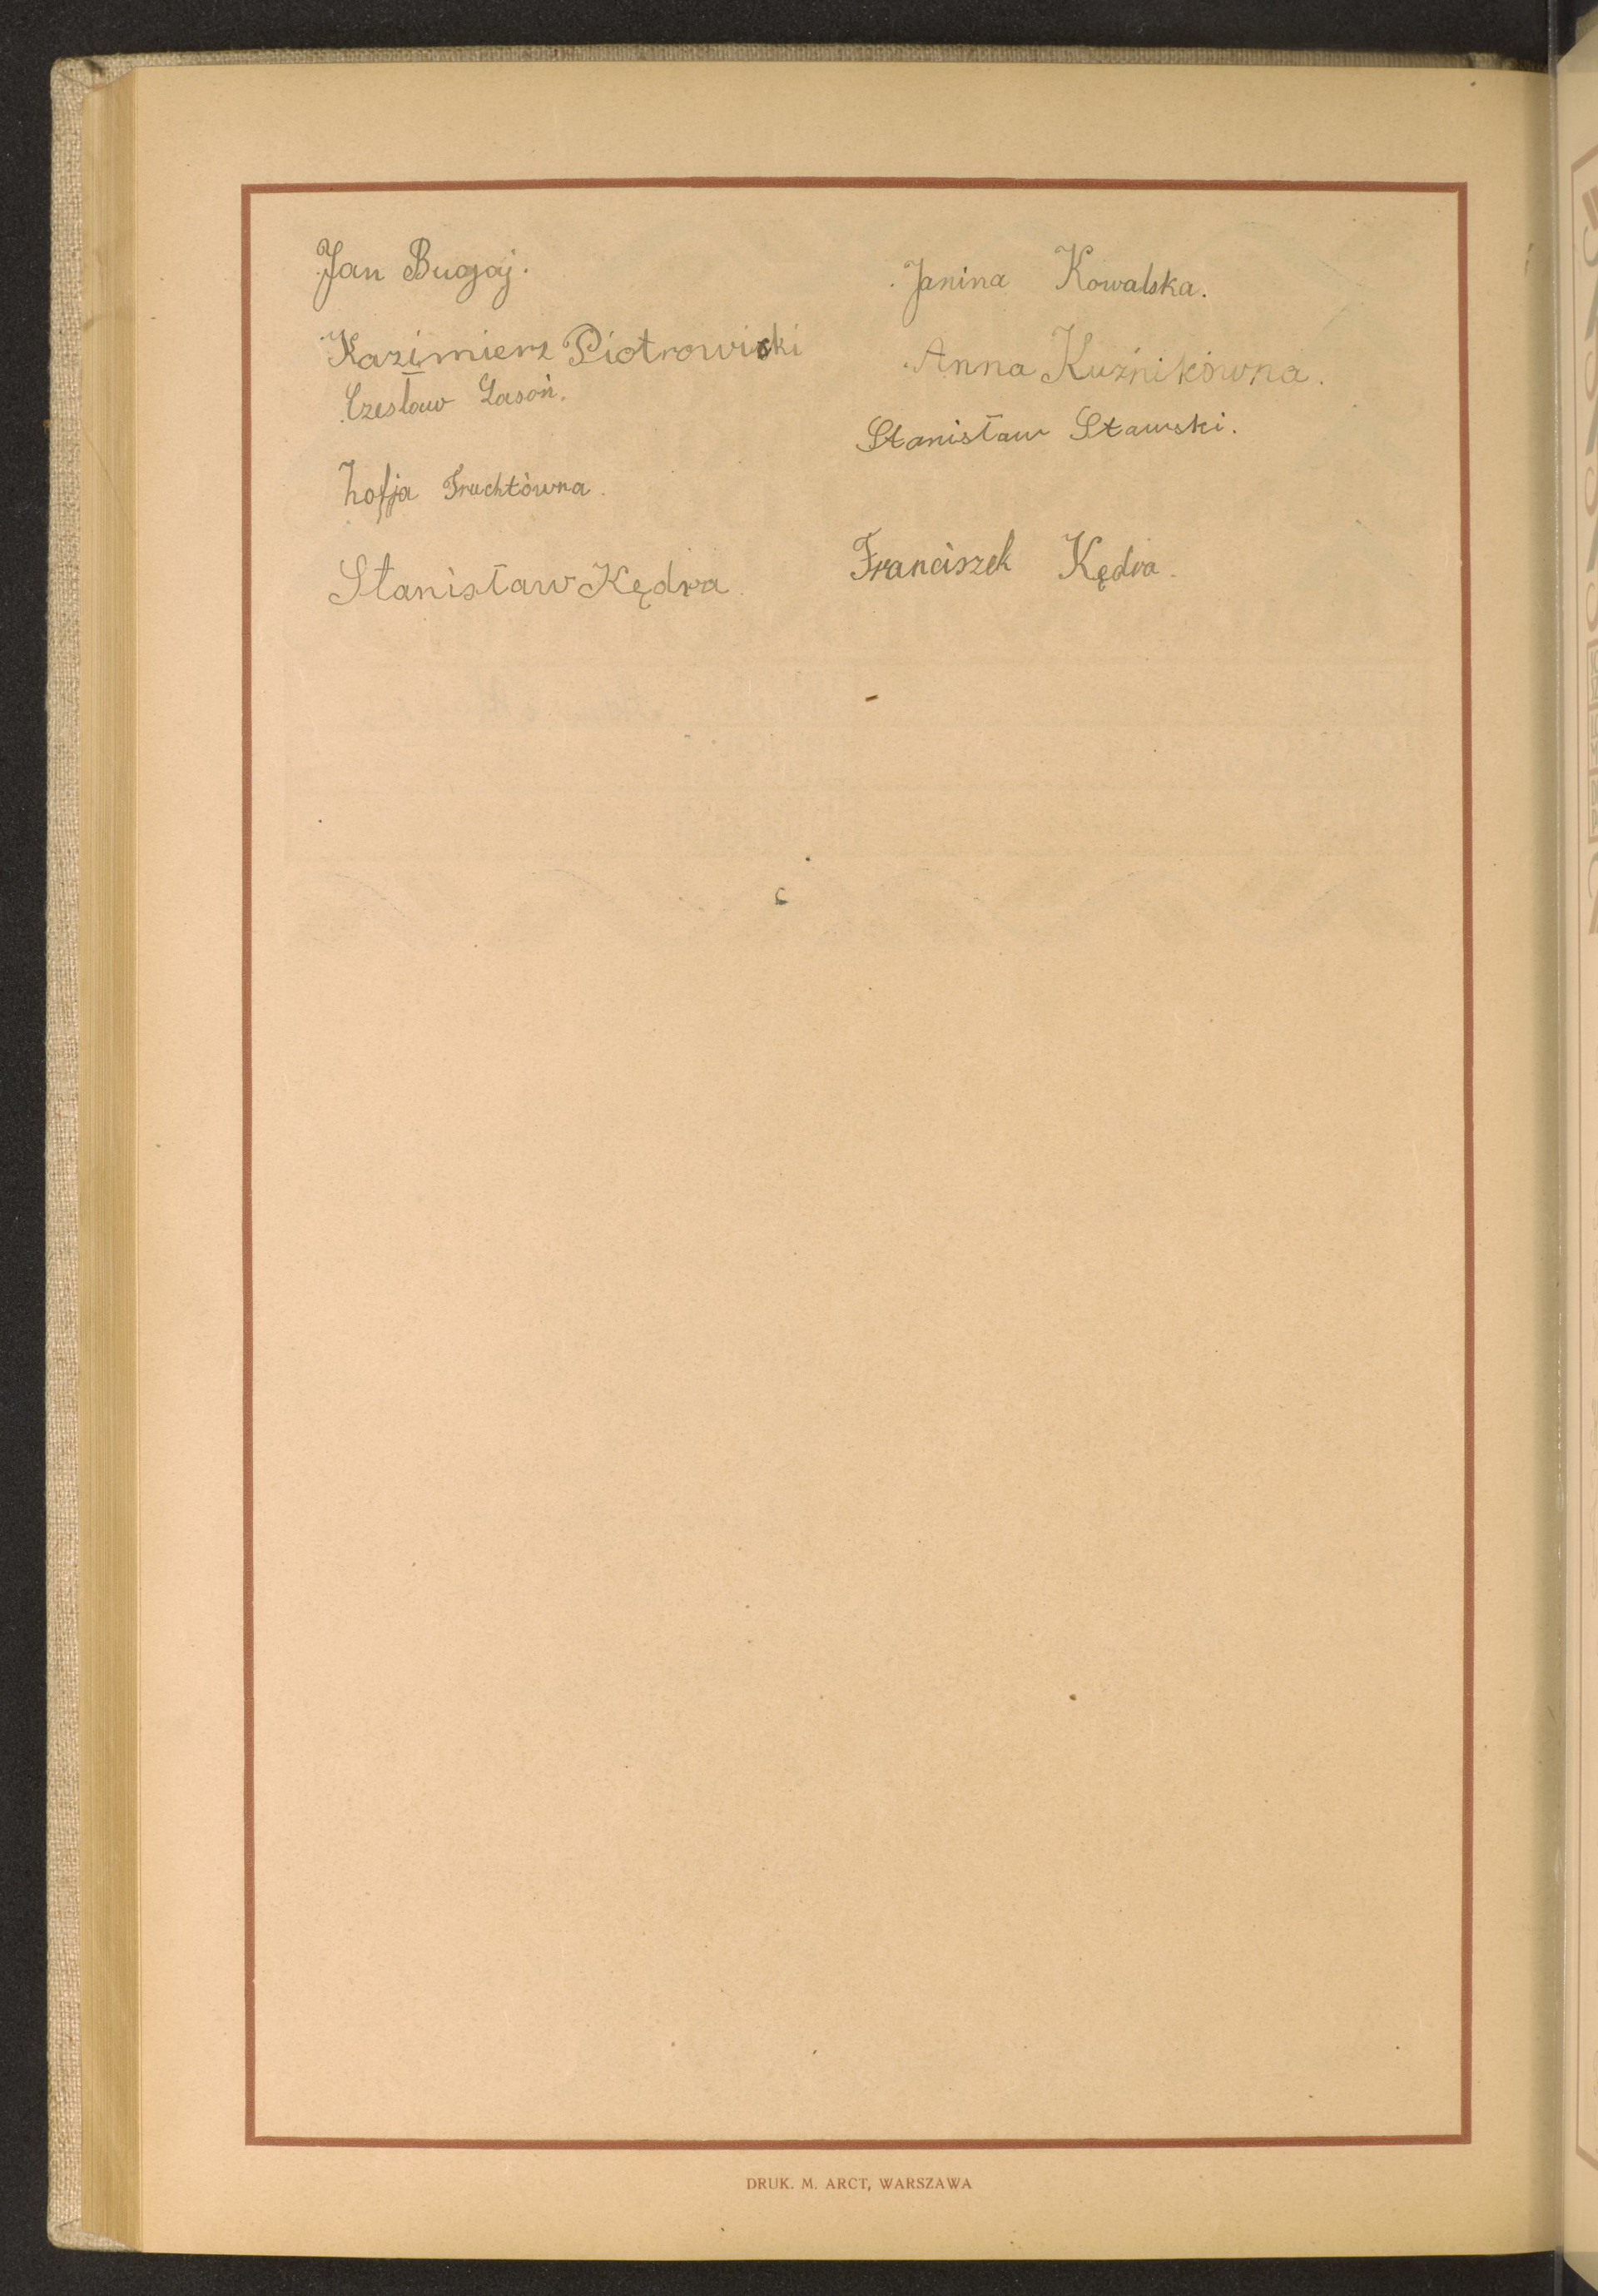 Jan Bugaj.
Kazimierz Piotrowicki
Czesław Lasoń.
Zofja Fruchtówna.
Stanisław Kędra.
Janina Kowalska.
Anna Kuźnikówna.
Stanisław Stawski.
Franciszek Kędra.
DRUK. M. ARCT, WARSZAWA